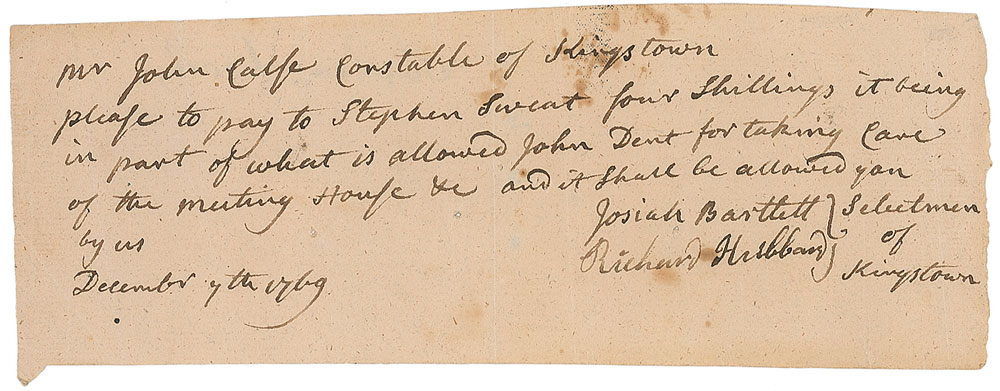 Mr John Calfe Constable of Kingstown
please to pay to Stephen Sweat four Shillings it being
in part of what is allowed John Dent for taking Care
of the meeting House &c and it Shall be allowed you
by us
Josiah Bartlett } Selectmen
Richard Hubbard } of
Kingstown
Decembr 7th 1769